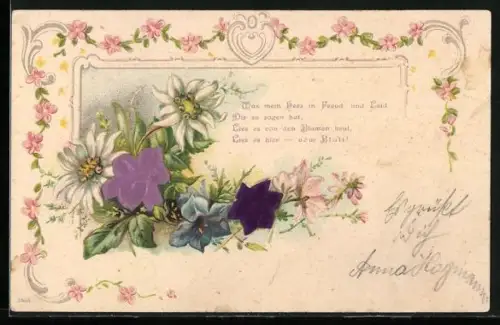 Was mein Herz in Freud und Leid
Dir zu sagen hat,
Lies es von den Blumen heut,
Lies es hier — vom Blatt!
Es grüßt
Dich
Anna Hagmann